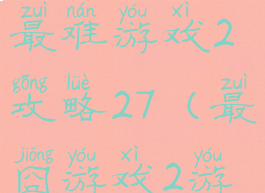 zuì nán yóu xì
最难游戏2
gōng lüè zuì
攻略27（最
jiǒng yóu xì yóu
囧游戏2游